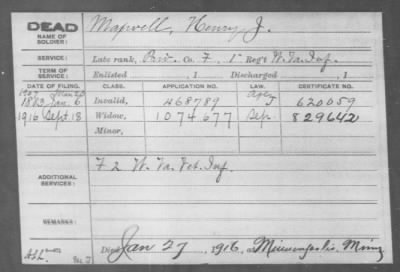 DEAD
NAME OF SOLDIER:
Maxwell, Henry J.
SERVICE:
Late rank, Priv. Co. F, 1" Reg't W. Va. Inf.
TERM OF SERVICE:
Enlisted , 1 Discharged , 1
DATE OF FILING. CLASS. APPLICATION NO. LAW. CERTIFICATE NO.
1883 Jan. 6 Invalid, 468789 620059
1916 Sept 18 Widow, 1074677 Sep. 829642
Minor,
ADDITIONAL SERVICES:
F 2 W. Va. Vet. Inf.
REMARKS:
Died Jan 27, 1916, at Minneapolis Minn